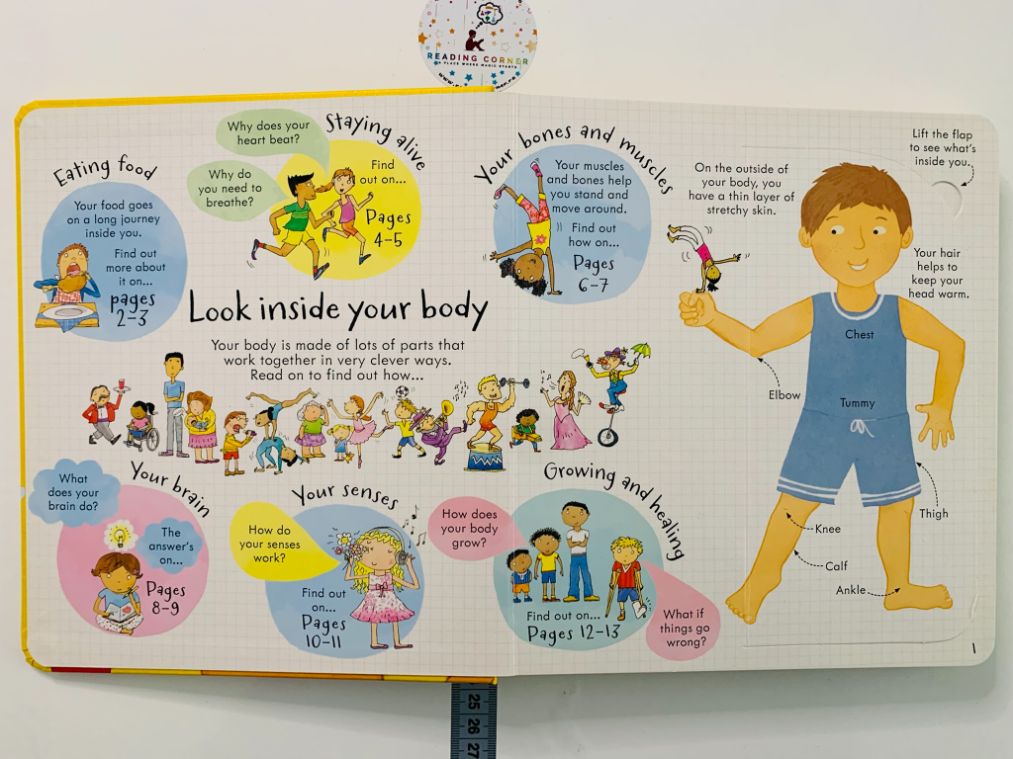 READING CORNER
A PLACE WHERE MAGIC STARTS
Eating food
Your food goes
on a long journey
inside you.
Find out
more about
it on...
pages
2–3
Staying alive
Why does your
heart beat?
Why do
you need to
breathe?
Find
out on...
Pages
4–5
Your bones and muscles
Your muscles
and bones help
you stand and
move around.
Find out
how on...
Pages
6–7
Look inside your body
Your body is made of lots of parts that
work together in very clever ways.
Read on to find out how...
Your brain
What
does your
brain do?
The
answer's
on...
Pages
8–9
Your senses
How do
your senses
work?
Find out
on...
Pages
10–11
Growing and healing
How does
your body
grow?
Find out on...
Pages 12–13
What if
things go
wrong?
On the outside of
your body, you
have a thin layer of
stretchy skin.
Lift the flap
to see what's
inside you.
Your hair
helps to
keep your
head warm.
Chest
Elbow
Tummy
Thigh
Knee
Calf
Ankle
1
25
26
27